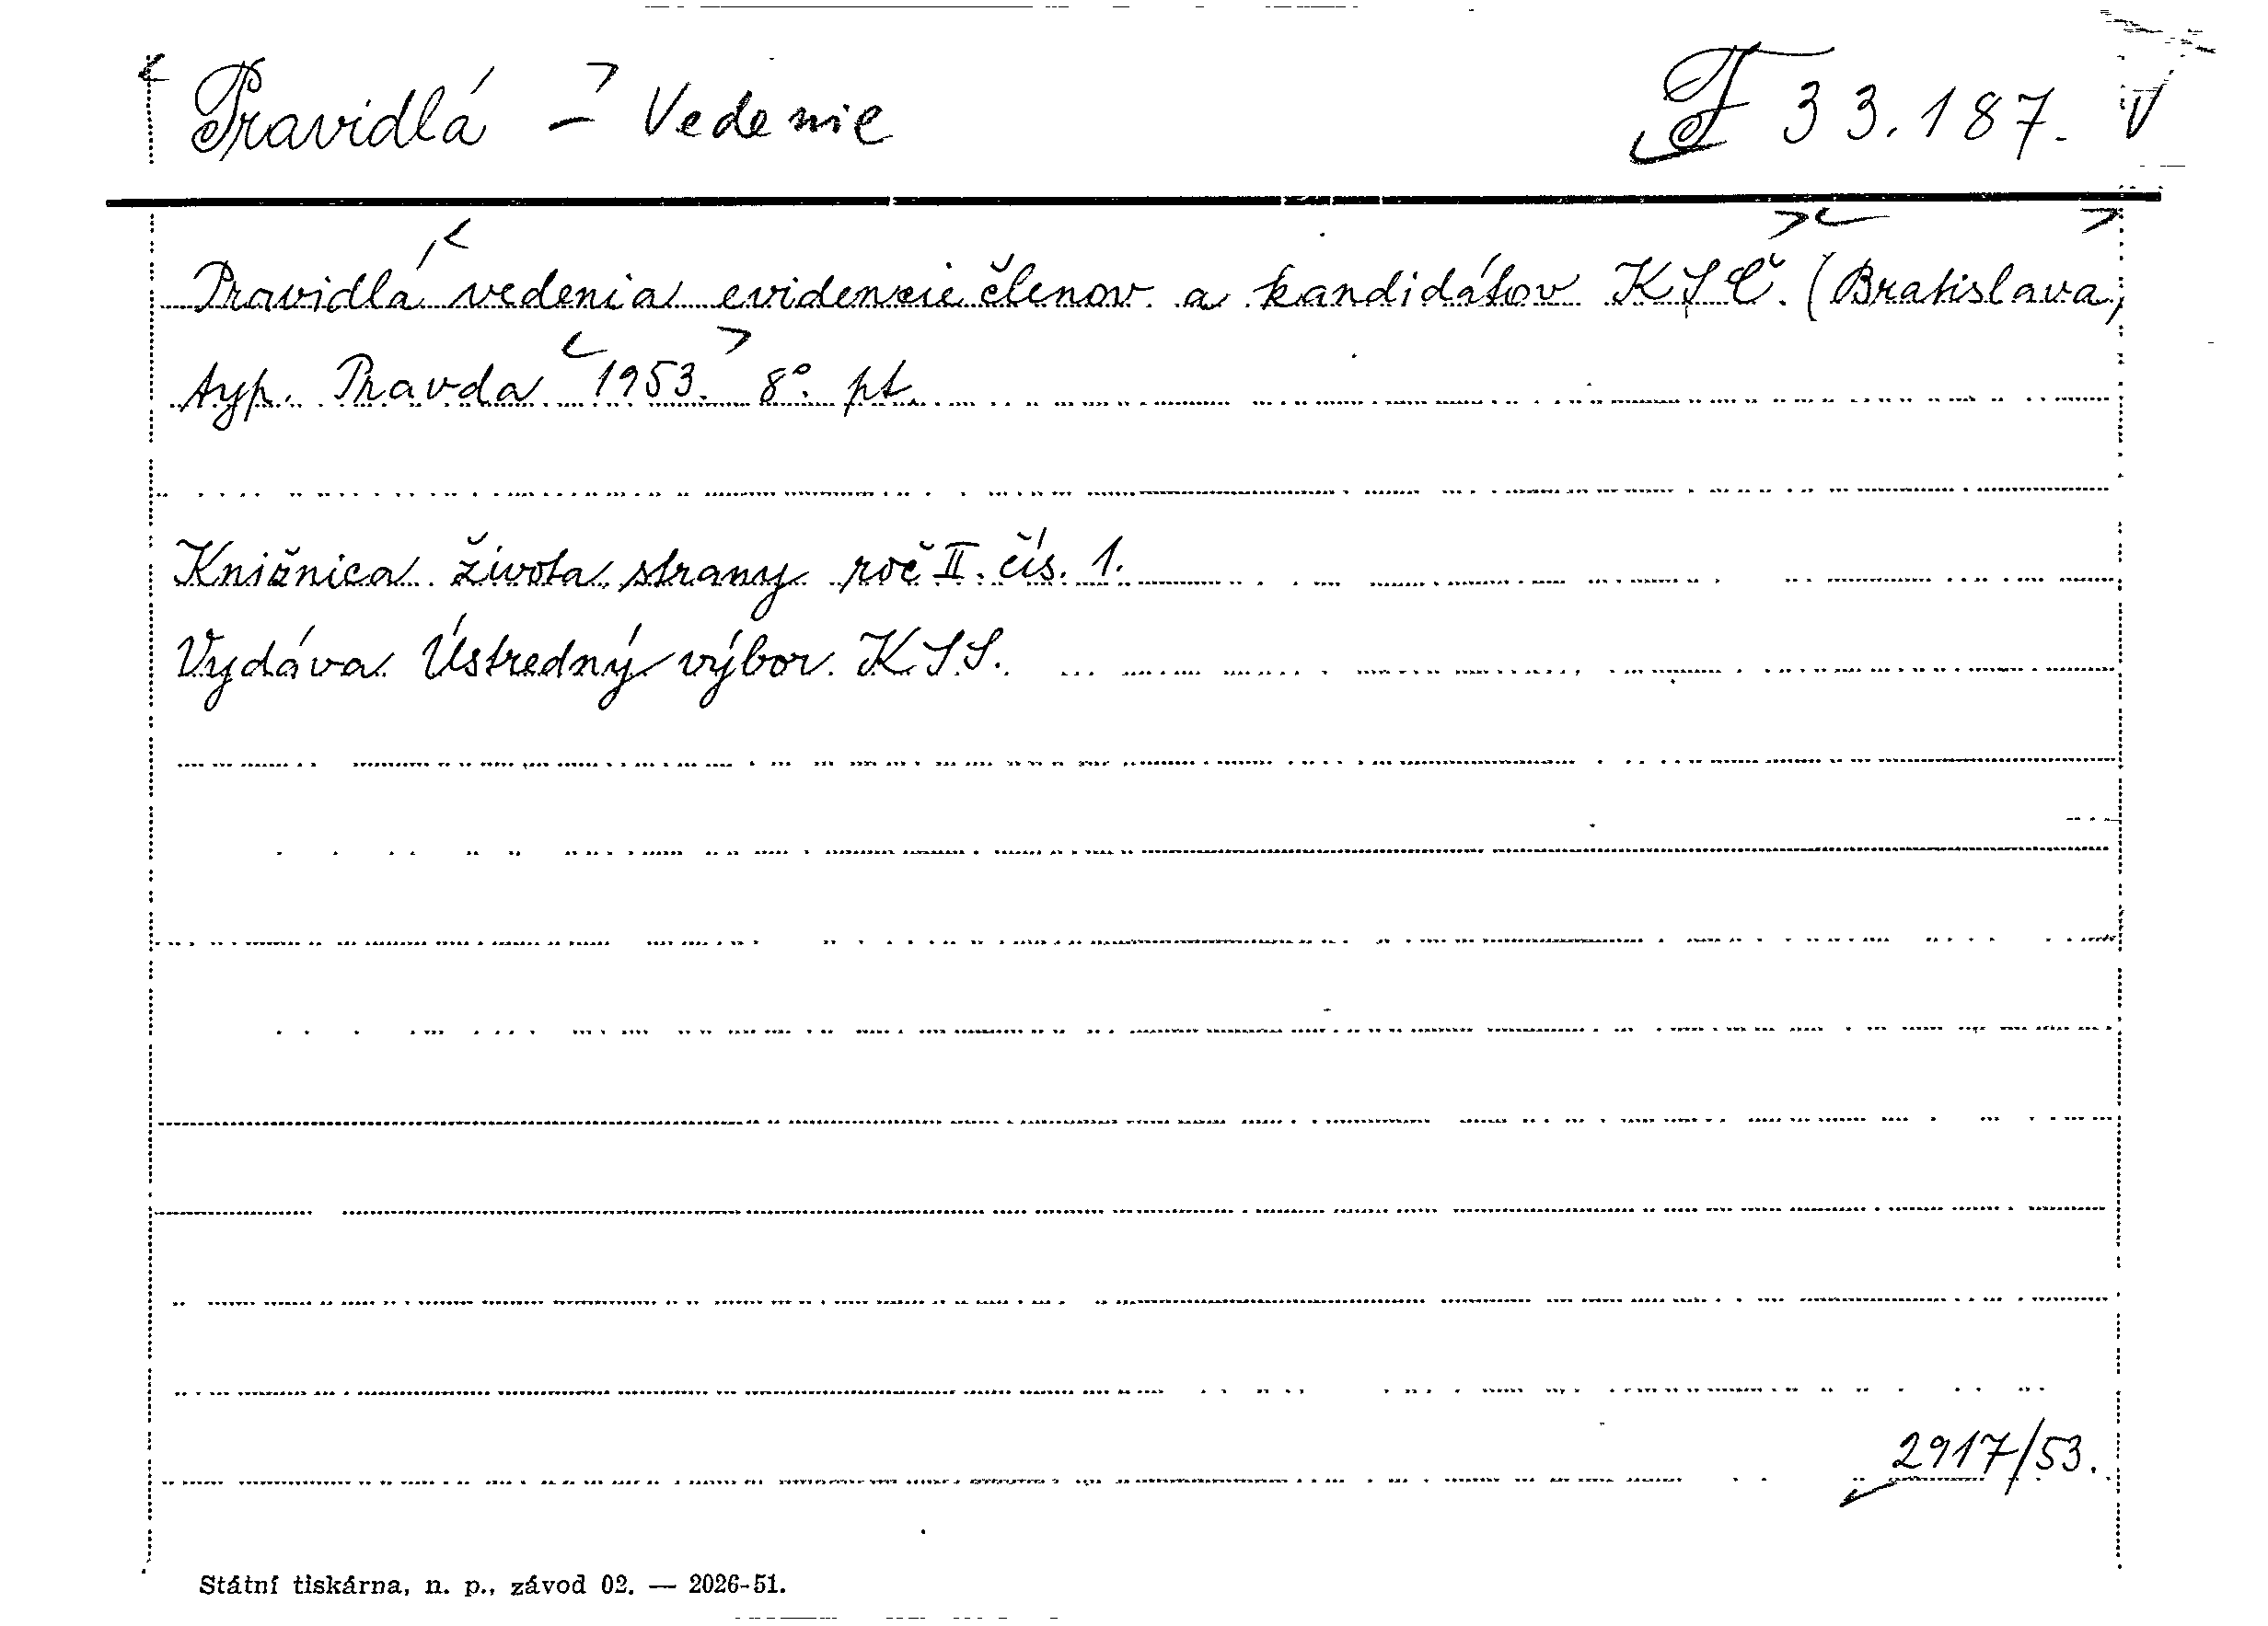 Pravidlá - Vedenie F 33.187. V
Pravidlá vedenia evidencie členov a kandidátov KSČ. (Bratislava,
typ. Pravda 1953. 8°. pt.
Knižnica života strany roč II. čís. 1.
Vydáva Ústredný výbor KSS.
2917/53.
Státní tiskárna, n. p., závod 02. — 2026-51.